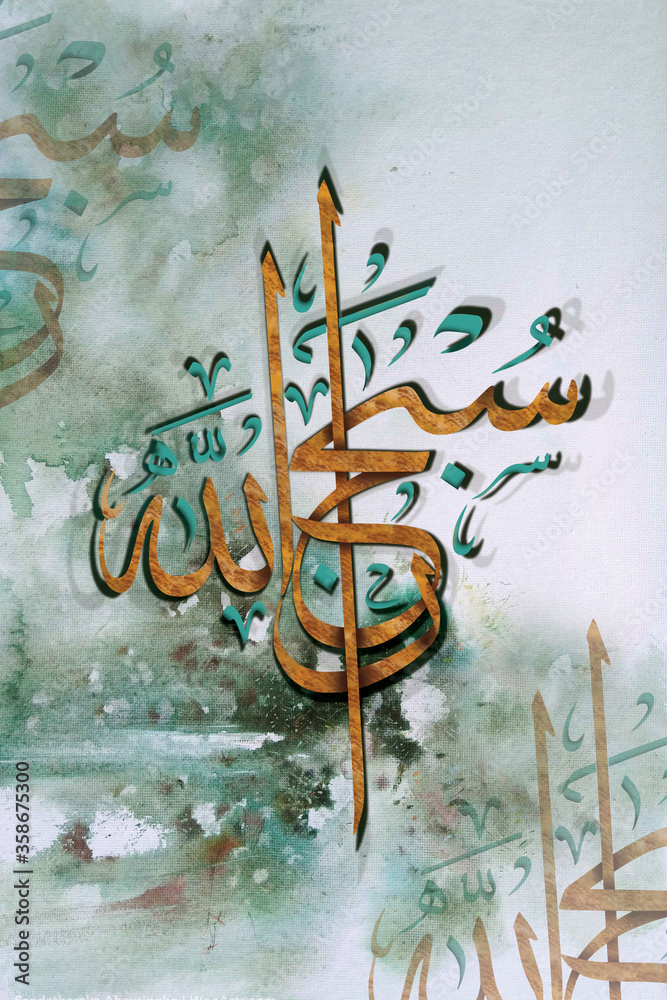 سُبْحَانَ اللّٰه
Adobe Stock | #358675300